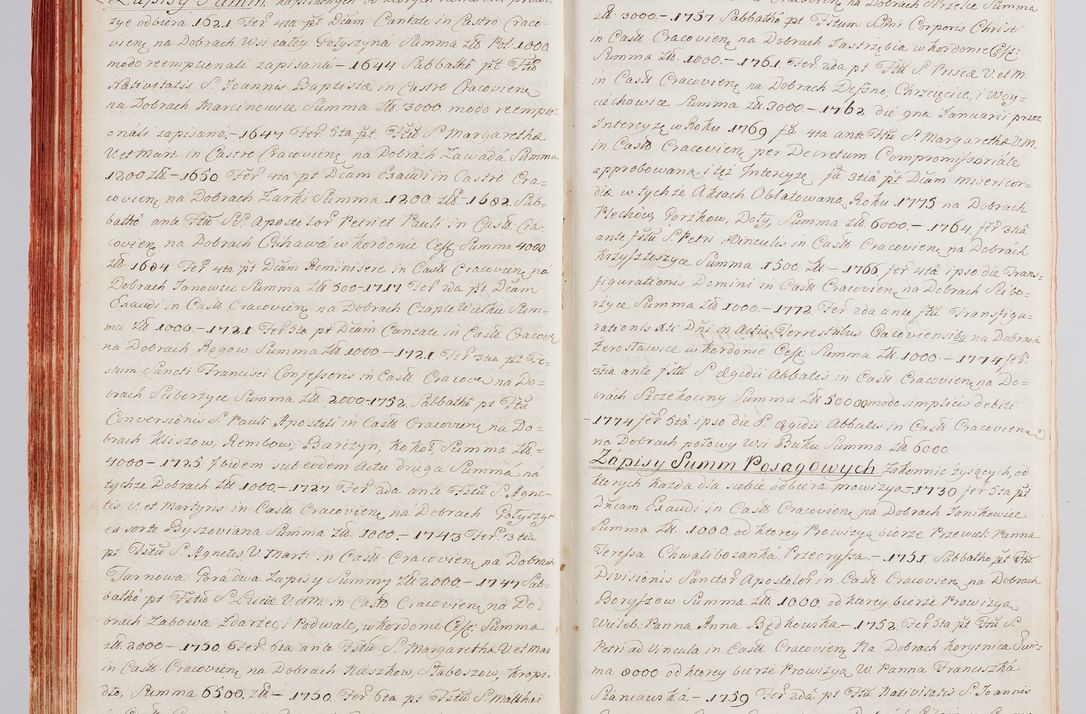 Zapisy Summ
zyę odbiera 1621 Fer 4ta pt Dcam Cantate in Castro Craco=
viens na Dobrach Wsi całey Gołyszyna Summa Złł Pol: 1000
modo reemptionali zapisana – 1644 Sabbatho pt Ftū
Nativitatis S. Joannis Baptistæ in Castro Cracoviens
na Dobrach Marcinowice Summa Złł 3000 modo reempti
onali zapisana, – 1647 Fer 5ta pt Ftū S. Margarethæ
V. et Mart: in Castro Cracoviens na Dobrach Zawada Summa
1200 złł – 1650 Fer 4ta pt Dcam Exaudi in Castro Cra=
coviens na Dobrach Zarki Summa 1200 złł – 1682. Sab=
batho ante Ftū SS. Apostolor Petri et Pauli in Castr. Cra=
coviens na Dobrach Cishawa w kordonie Cesk: Summa 4000
złł 1684 Fer 4ta pt Dcam Reminisere in Castr Cracoviens na
Dobrach Janowice Summa złł 500 – 1717 Fer 2da pt Dcam
Exaudi in Castr Cracoviens na Dobrach Czaple Wielkie Sum=
ma złł 1000. – 1721 Fer 5ta pt Dcam Cantate in Castr Cracov
na Dobrach Rogow Summa Złł 1000 – 1721 Fer 3tia pt Fe=
stum Sancti Francisci Confessoris in Castr Cracov: na Do=
brach Sciborzyce Summa Złł. 2000 – 1752 Sabbatho pt Ftū
Conversionis S. Pauli Apostoli in Castr Cracoviens na Do=
brach Kliszow, Rembow, Barczyn, Kokoł, Summa Złł =
4000 – 1725 Ibidem sub eodem Actu druga Summa na
tychże Dobrach złł 1000. – 1727 Fer 2da ante Ftū S. Agne=
tis V. et Martyris in Castr Cracoviens na Dobrach Gołyszyn
ex sorte Byszoviana Summa złł. 1000 – 1743 Fer. 3tia
pt Ftū S. Agnetis V. Mart: in Castr Cracoviens na Dobrach
Tarnowa Gora dwa Zapisy Summy złł 2000 – 1747 Sab=
batho pt Ftū S. Luciæ V. et M. in Castr Cracoviens na Do=
brach Zabowa Zdarzec, i Podwale, w kordonie Cesk: Summa
złł. 2000 – 1750. Fer 6ta ante Ftū S. Margarethæ V. et Mar
in Castr Cracoviens na Dobrach Kaszkow, Słaboszow, Kropi=
dło, Summa 6500. złł – 1750 Fer 6ta pt Ftū S. Matthæi
na Dobrach Summa
złł. 3000 – 1757 Sabbatho pt Fstum SSmi Corporis Christi
in Castr Cracoviens na Dobrach Jastrzębia w kordonie Cesk:
Summa Złł. 1000. – 1761 Fer 2da pt Ftū S. Priscæ V. et M.
in Castr Cracoviens na Dobrach Dessno, Chrzczięcice, i Woy=
ciechowice Summa złł 2000 – 1762. die 9na Januarii przez
Intercyzę w Roku 1769 fer 4ta ante Ftū S. Margarethæ V. M.
in Castr Cracoviens per Decretum Compromissoriale
approbowana i też Intercyzę fer 3tia pt Dcam misericor=
diæ w tychże Aktach Oblatowana Roku 1775 na Dobrach
Plechow, Gorzkow, Doły, Summa złł 6000. – 1764. fer 3tia
ante fstū S. Petri ad Vincula in Castr Cracoviens na Dobrach
Krzysztoszyce Summa 1500. złł – 1766 fer 4ta ipso die Trans=
figurationis Domini in Castr Cracoviens na Dobrach Scibo=
rzyce Summa złł. 1000 – 1772 Fer 2da ante ftū Transfigu=
rationis xti Dni in Actis Terrestribus Cracoviensib na Dobrach
Zerosławice w kordonie Cesk: Summa złł 1000 – 1774 fer
3tia ante fstū S. Ægidii Abbatis in Castr Cracoviens na Do=
brach Szczekociny Summa złł 50000 modo simplicis debiti
– 1774 fer 5ta ipso die S. Ægidii Abbatis in Castr Cracoviens
na Dobrach połowy Wsi Buku Summa złł 6000
Zapisy Summ Posagowych, zakonnic zyiących, od
ktorych każda dla siebie odbiera prowizyą – 1730 fer 5ta pt
Dncam Exaudi in Castr Cracoviens na Dobrach Janikowice
Summa złł. 1000. od ktorey Prowizyą bierze Przewiel: Panna
Teressa Chwalibozanka Przeoryssa. – 1751. Sabbatho pt Ftū
Divisionis Sanctor Apostolor in Castr Cracoviens na Dobrach
Boryszow Summa złł 1000. od ktorey bierze Prowizyą
Wieleb: Panna Anna Będkowska – 1752. Fer 5ta pt Ftū S.
Petri ad Vincula in Castr Cracoviens Na Dobrach Korytnica Sum=
ma 8000 od ktorey bierze Prowizyą W. Panna Franciszka
Szaniawska – 1759 Fer 2da pt Ftū Nativitatis S. Joannis